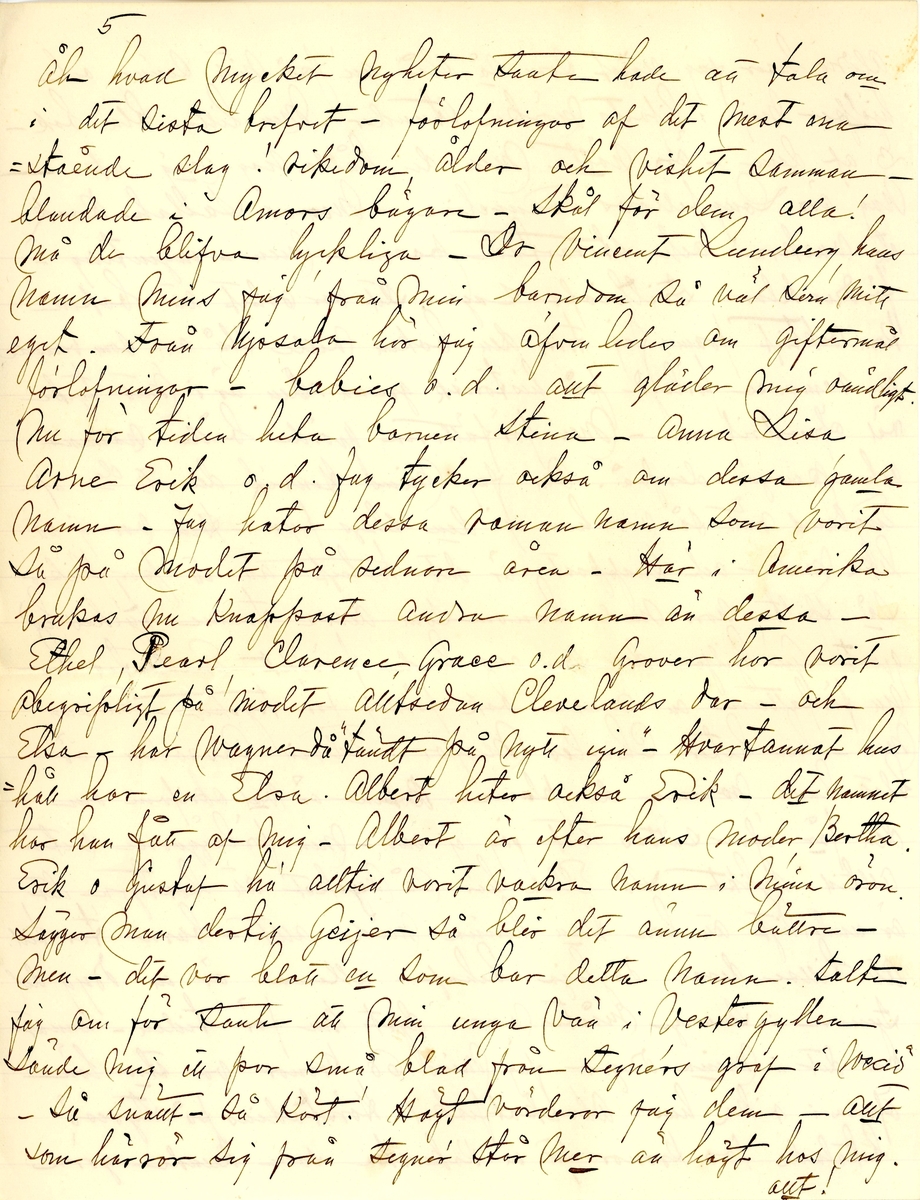 5
Åh hvad mycket nyheter tante hade att tala om
i det sista brefvet – förlofningar af det mest ena
=stående slag! rikedom, ålder och vishet samman –
blandade i Amors bägare – Skål för dem alla!
må de blifva lyckliga – Dr Vincent Lundberg hans
namn mins jag från min barndom så väl som mitt
eget. Från Upsala hör jag äfvenledes om giftermål
förlofningar – babies o.d. allt gläder mig oändligt.
Nu för tiden heta barnen Stina – Anna Lisa
Arne Erik o.d. Jag tycker också om dessa gamla
namn – Jag hatar dessa roman namn som varit
så på modet på sednare åren – Här i Amerika
brukas nu knappast andra namn än dessa –
Ethel, Pearl, Clarence, Grace o.d. Grover har varit
obegripligt på modet alltsedan Clevelands dar – och
Elsa – har Wagner då "tändt på nytt igen" – Hvartannat hus
"håll har en Elsa. Albert heter också Erik – det namnet
har han fått af mig – Albert är efter hans moder Bertha.
Erik o Gustaf ha alltid varit vackra namn i mina öron.
Lägger man dertig Geijer så blir det ännu bättre –
men – det var blott en som bar detta namn. talte
jag om för tante att min unga vän i Vestergyllen
sände mig ett par små blad från Tegnérs graf i Wexiö
– Så snällt – så kärt! Högt värderar jag dem – allt
som härrör sig från Tegnér står mer än högt hos mig.
allt!